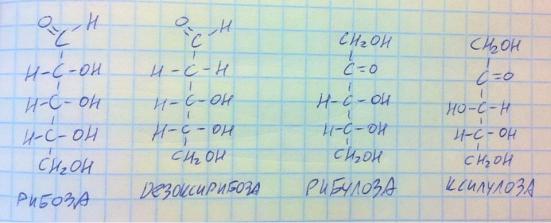 O H O H
C C CH₂OH CH₂OH
H-C-OH H-C-H C=O C=O
H-C-OH H-C-OH H-C-OH HO-C-H
H-C-OH H-C-OH H-C-OH H-C-OH
CH₂OH CH₂OH CH₂OH CH₂OH
РИБОЗА ДЕЗОКСИРИБОЗА РИБУЛОЗА КСИЛУЛОЗА